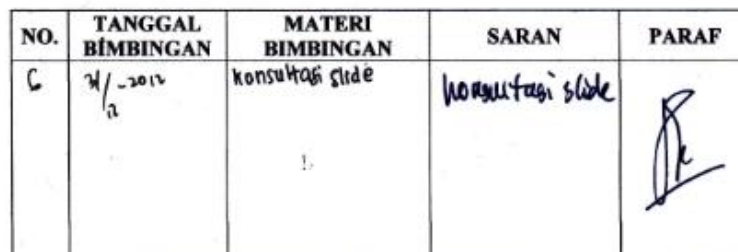 NO. TANGGAL BIMBINGAN MATERI BIMBINGAN SARAN PARAF
6 31/12-2012 konsultasi slide konsultasi slide